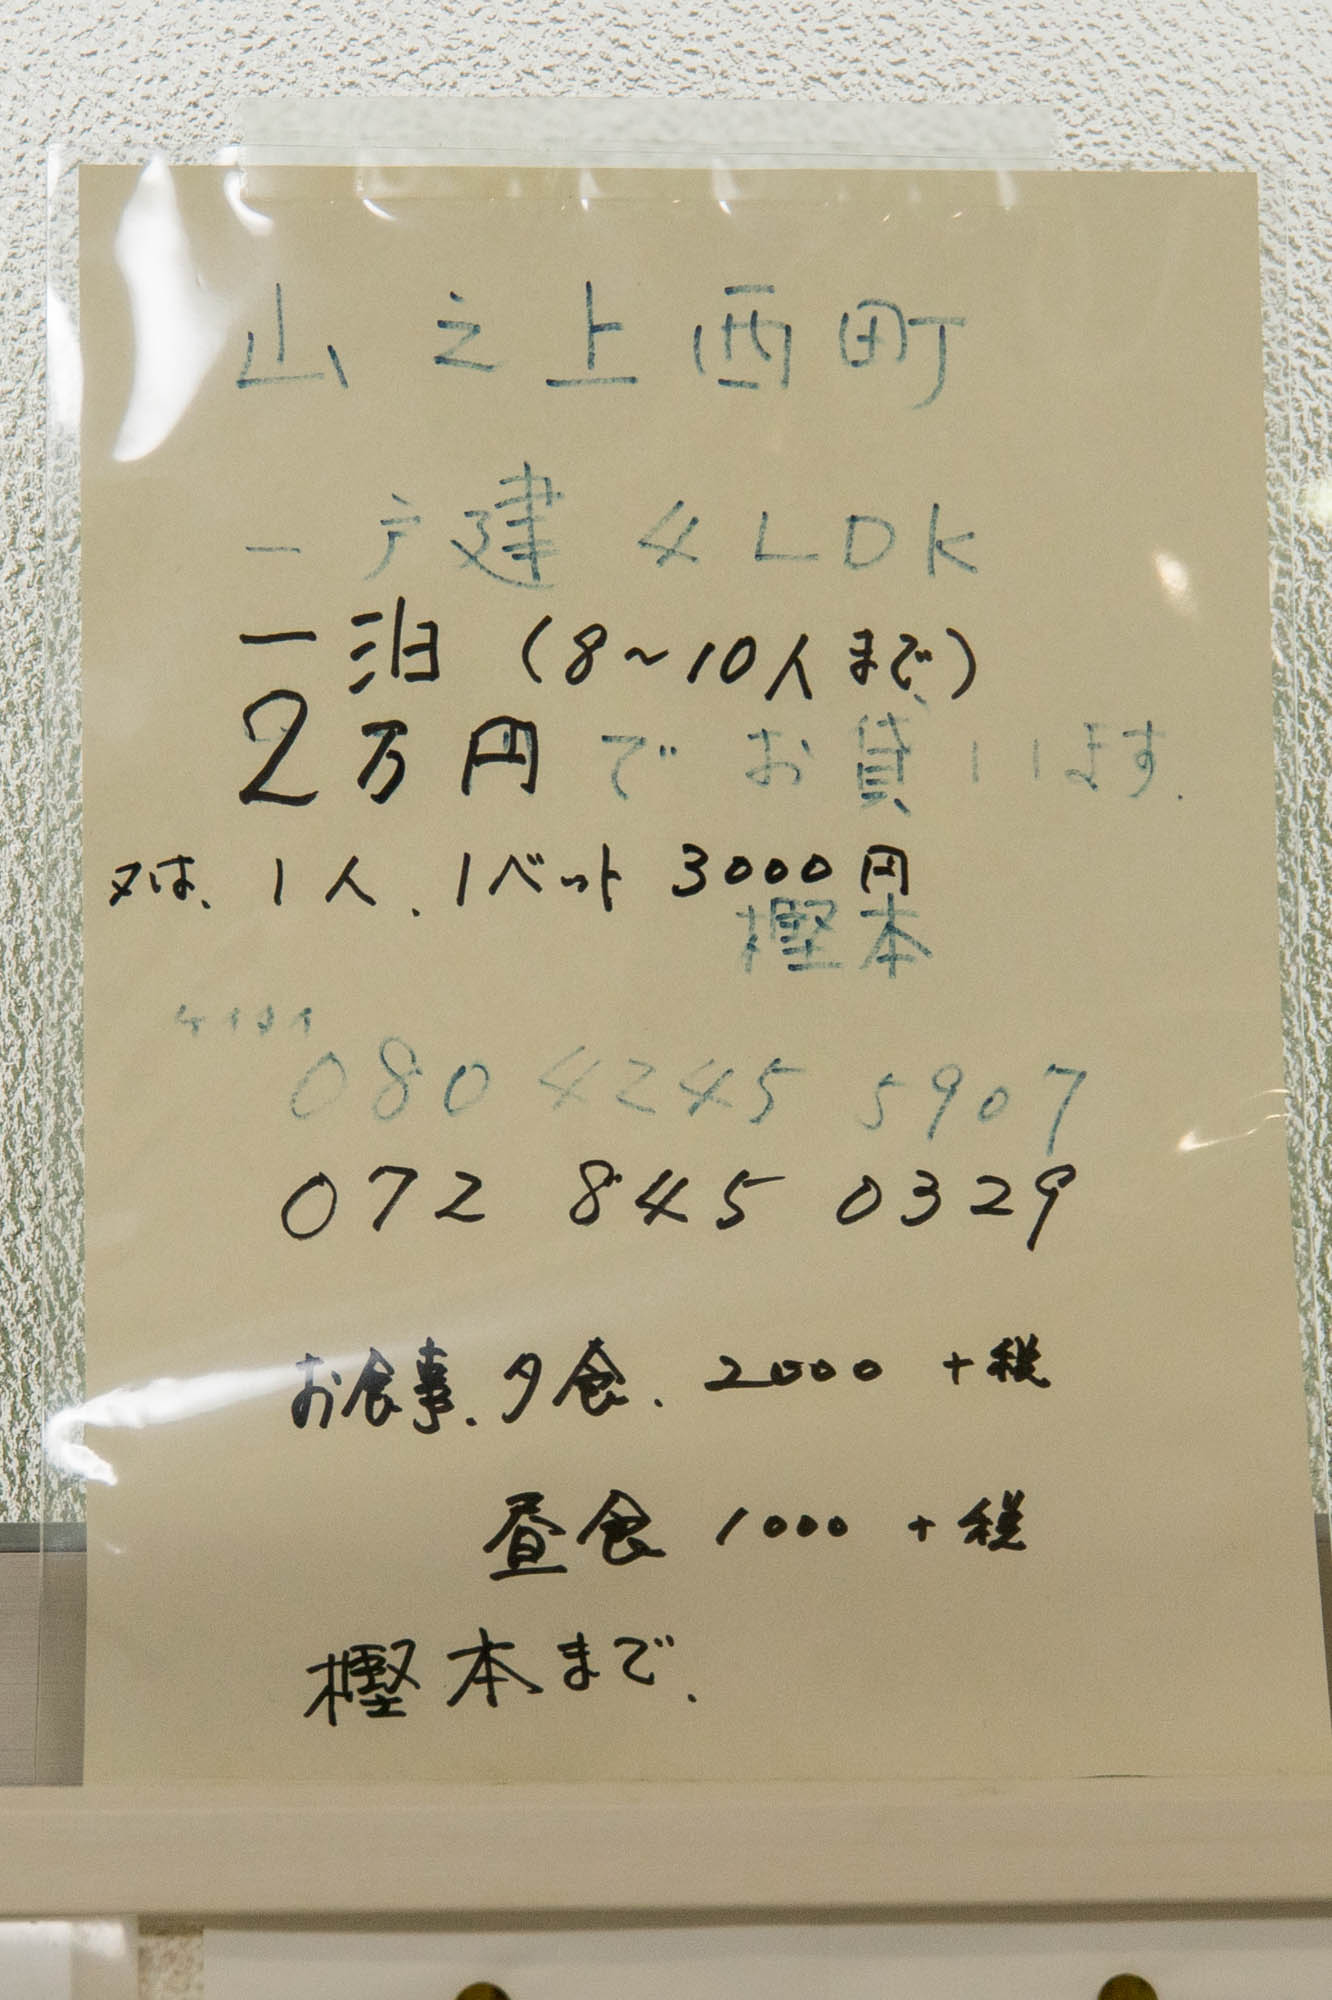 山之上西町
一戸建 4LDK
一泊 (8～10人まで)
2万円でお貸しします.
又は、1人、1ベット 3000円
樫本
ケイタイ
080 4245 5907
072 845 0329
お食事、夕食、2000 +税
昼食 1000 +税
樫本まで.